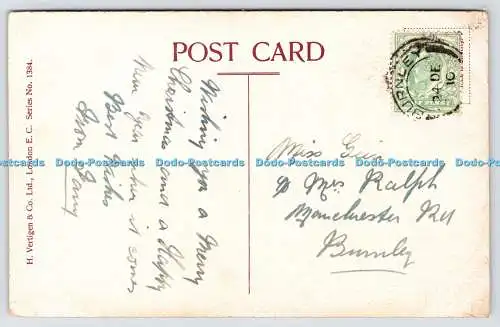 POST CARD
H. Vertigen & Co. Ltd., London E. C. Series No. 1384.
Wishing you a Merry
Christmas and a Happy
New Year when it comes
Best Wishes
from
BURNLEY
24 DE
10
Miss
c/o Mrs Ralph
Manchester Rd
Burnley
Dodo-Postcards Dodo-Postcards Dodo-Postcards Dodo-Postcards Dodo-Postcards Dodo-Postcards Dodo-Postcards